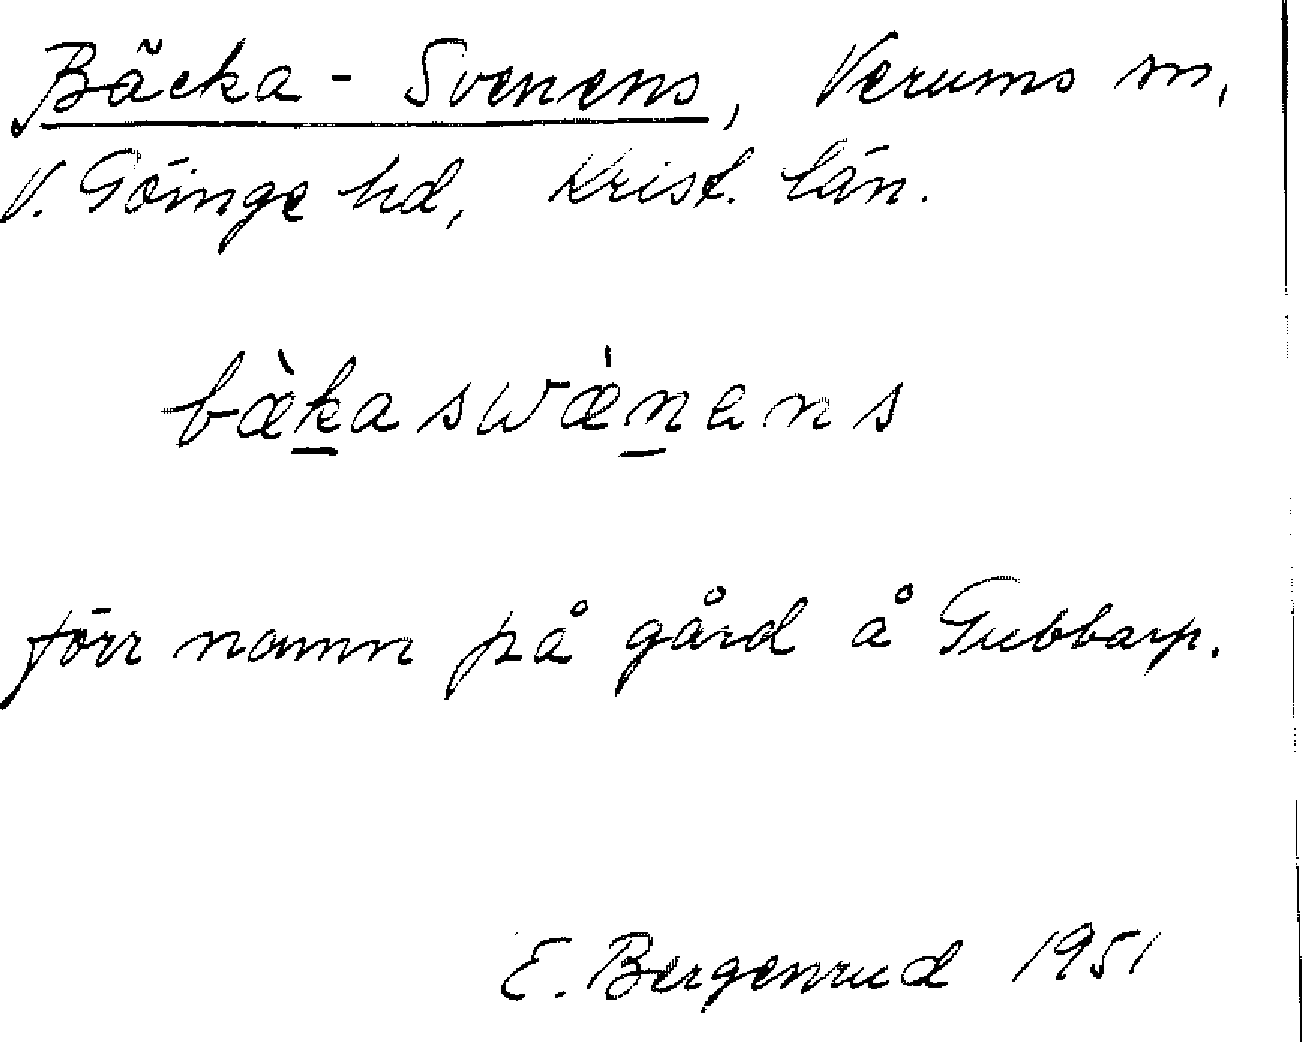 Bäcka - Svenens, Verums sn,
V. Göinge hd, Krist. län.
bæ̀k̲aswæ̀n̲ans
förr namn på gård å Gubbarp.
E. Bergenrud 1951